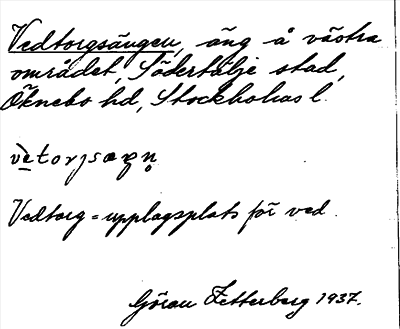 Vedtorgsängen, äng å västra
området, Södertälje stad,
Öknebo hd, Stockholms l.
Vedtorg = upplagsplats för ved.
Göran Zetterberg 1937.